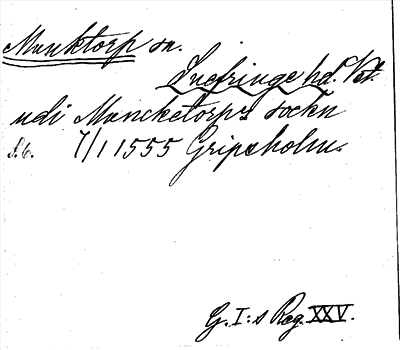 Munktorp sn.
Snefringe hd. Vstl.
udi Muncketorps sockn
s. 6. 7/1 1555 Gripsholm.
G. I:s Reg. XXV.